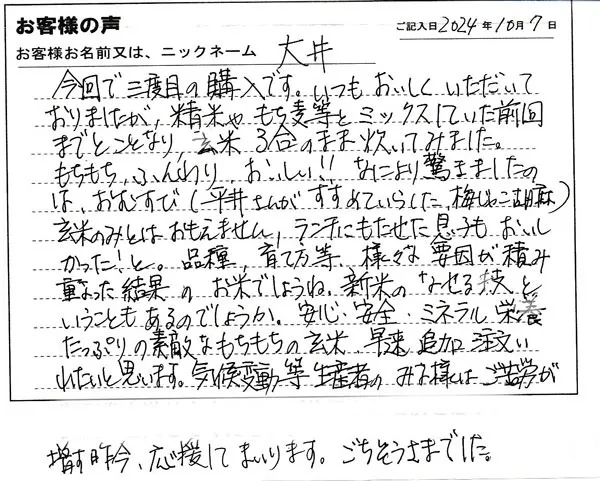 お客様の声 ご記入日 2024年10月7日
お客様お名前又は、ニックネーム 大井
今回で三度目の購入です。いつもおいしくいただいて
おりましたが、精米やもち麦等とミックスしていた前回
までとことなり、玄米3合のまま炊いてみました。
もちもち、ふんわり、おいしい!! なにより驚きましたの
は、おむすび(平井さんがすすめていらした、梅じゃこ胡麻)
玄米のみとはおもえません。ランチにもたせた息子もおいし
かった!と。品種、育て方等、様々な要因が積み
重なった結果のお米でしょうね。新米のなせる技と
いうこともあるのでしょうか。安心・安全・ミネラル、栄養
たっぷりの素敵なもちもちの玄米、早速追加注文い
れたいと思います。気候変動等生産者のみな様はご苦労が
増す昨今、応援してまいります。ごちそうさまでした。